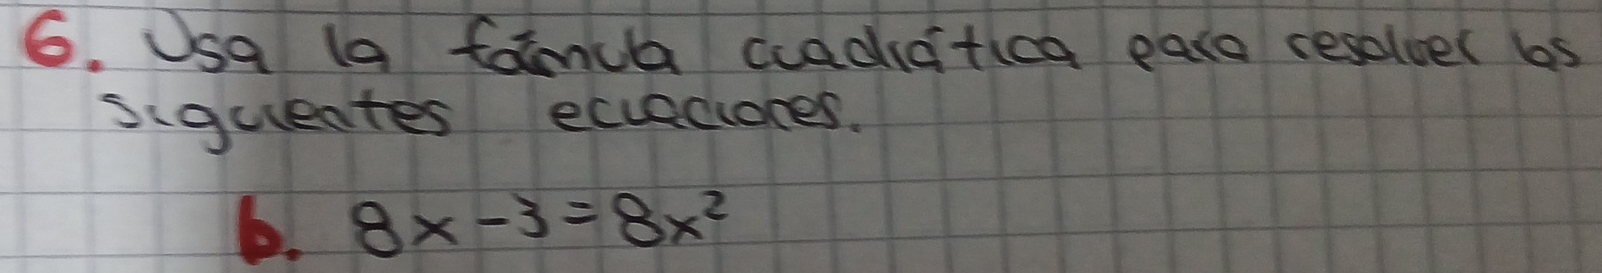 6. Usa la fórmula cuadrática para resolver los
siguientes ecuaciones.
b. 8x - 3 = 8x²